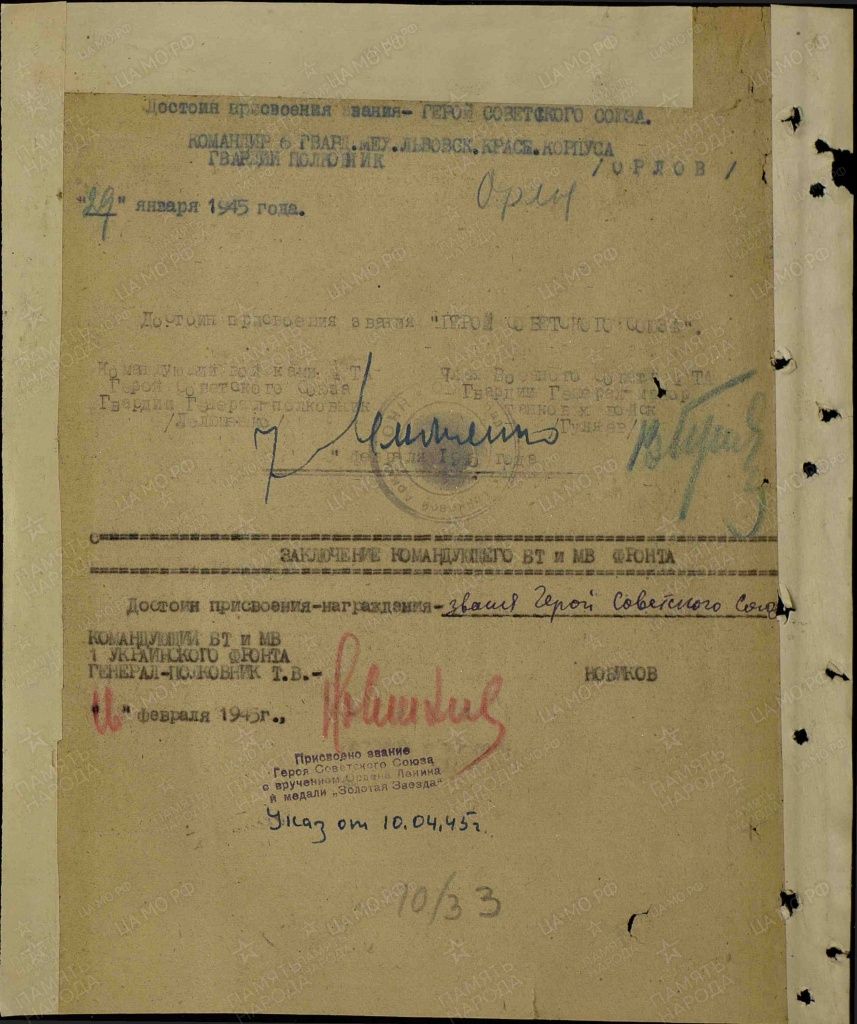 Достоин присвоения звания- ГЕРОЙ СОВЕТСКОГО СОЮЗА.
КОМАНДИР 6 ГВАРД.МЕХ.ЛЬВОВСК.КРАСН.КОРПУСА
ГВАРДИИ ПОЛКОВНИК /ОРЛОВ/
Орлов
"29" января 1945 года.
Достоин присвоения звания "ГЕРОЙ СОВЕТСКОГО СОЮЗА".
Командующий войсками 4 ТА Член Военного Совета 4 ТА
Герой Советского Союза Гвардии Генерал-майор
Гвардии Генерал-полковник танковых войск
/Лелюшенко/ /Гуляев/
" февраля 1945 года
ЗАКЛЮЧЕНИЕ КОМАНДУЮЩЕГО БТ и МВ ФРОНТА
Достоин присвоения-награждения-звания Герой Советского Союза
КОМАНДУЮЩИЙ БТ и МВ
1 УКРАИНСКОГО ФРОНТА
ГЕНЕРАЛ-ПОЛКОВНИК Т.В.- НОВИКОВ
"16" февраля 1945г.,
Присвоено звание
Героя Советского Союза
с вручением Ордена Ленина
и медали „Золотая Звезда"
Указ от 10.04.45г.
10/33
ЦАМО.РФ
ПАМЯТЬ НАРОДА